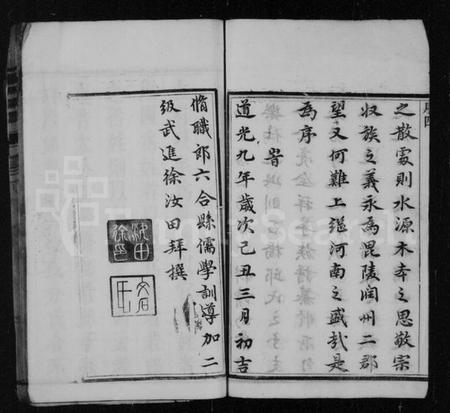 之散處則水源木本之思敬宗
收族之義永爲毘陵潤州二郡
望又何難上繼河南之盛哉是
爲序
旹
道光九年歲次己丑三月初吉
脩職郎六合縣儒學訓導加二
級武進徐汝田拜撰